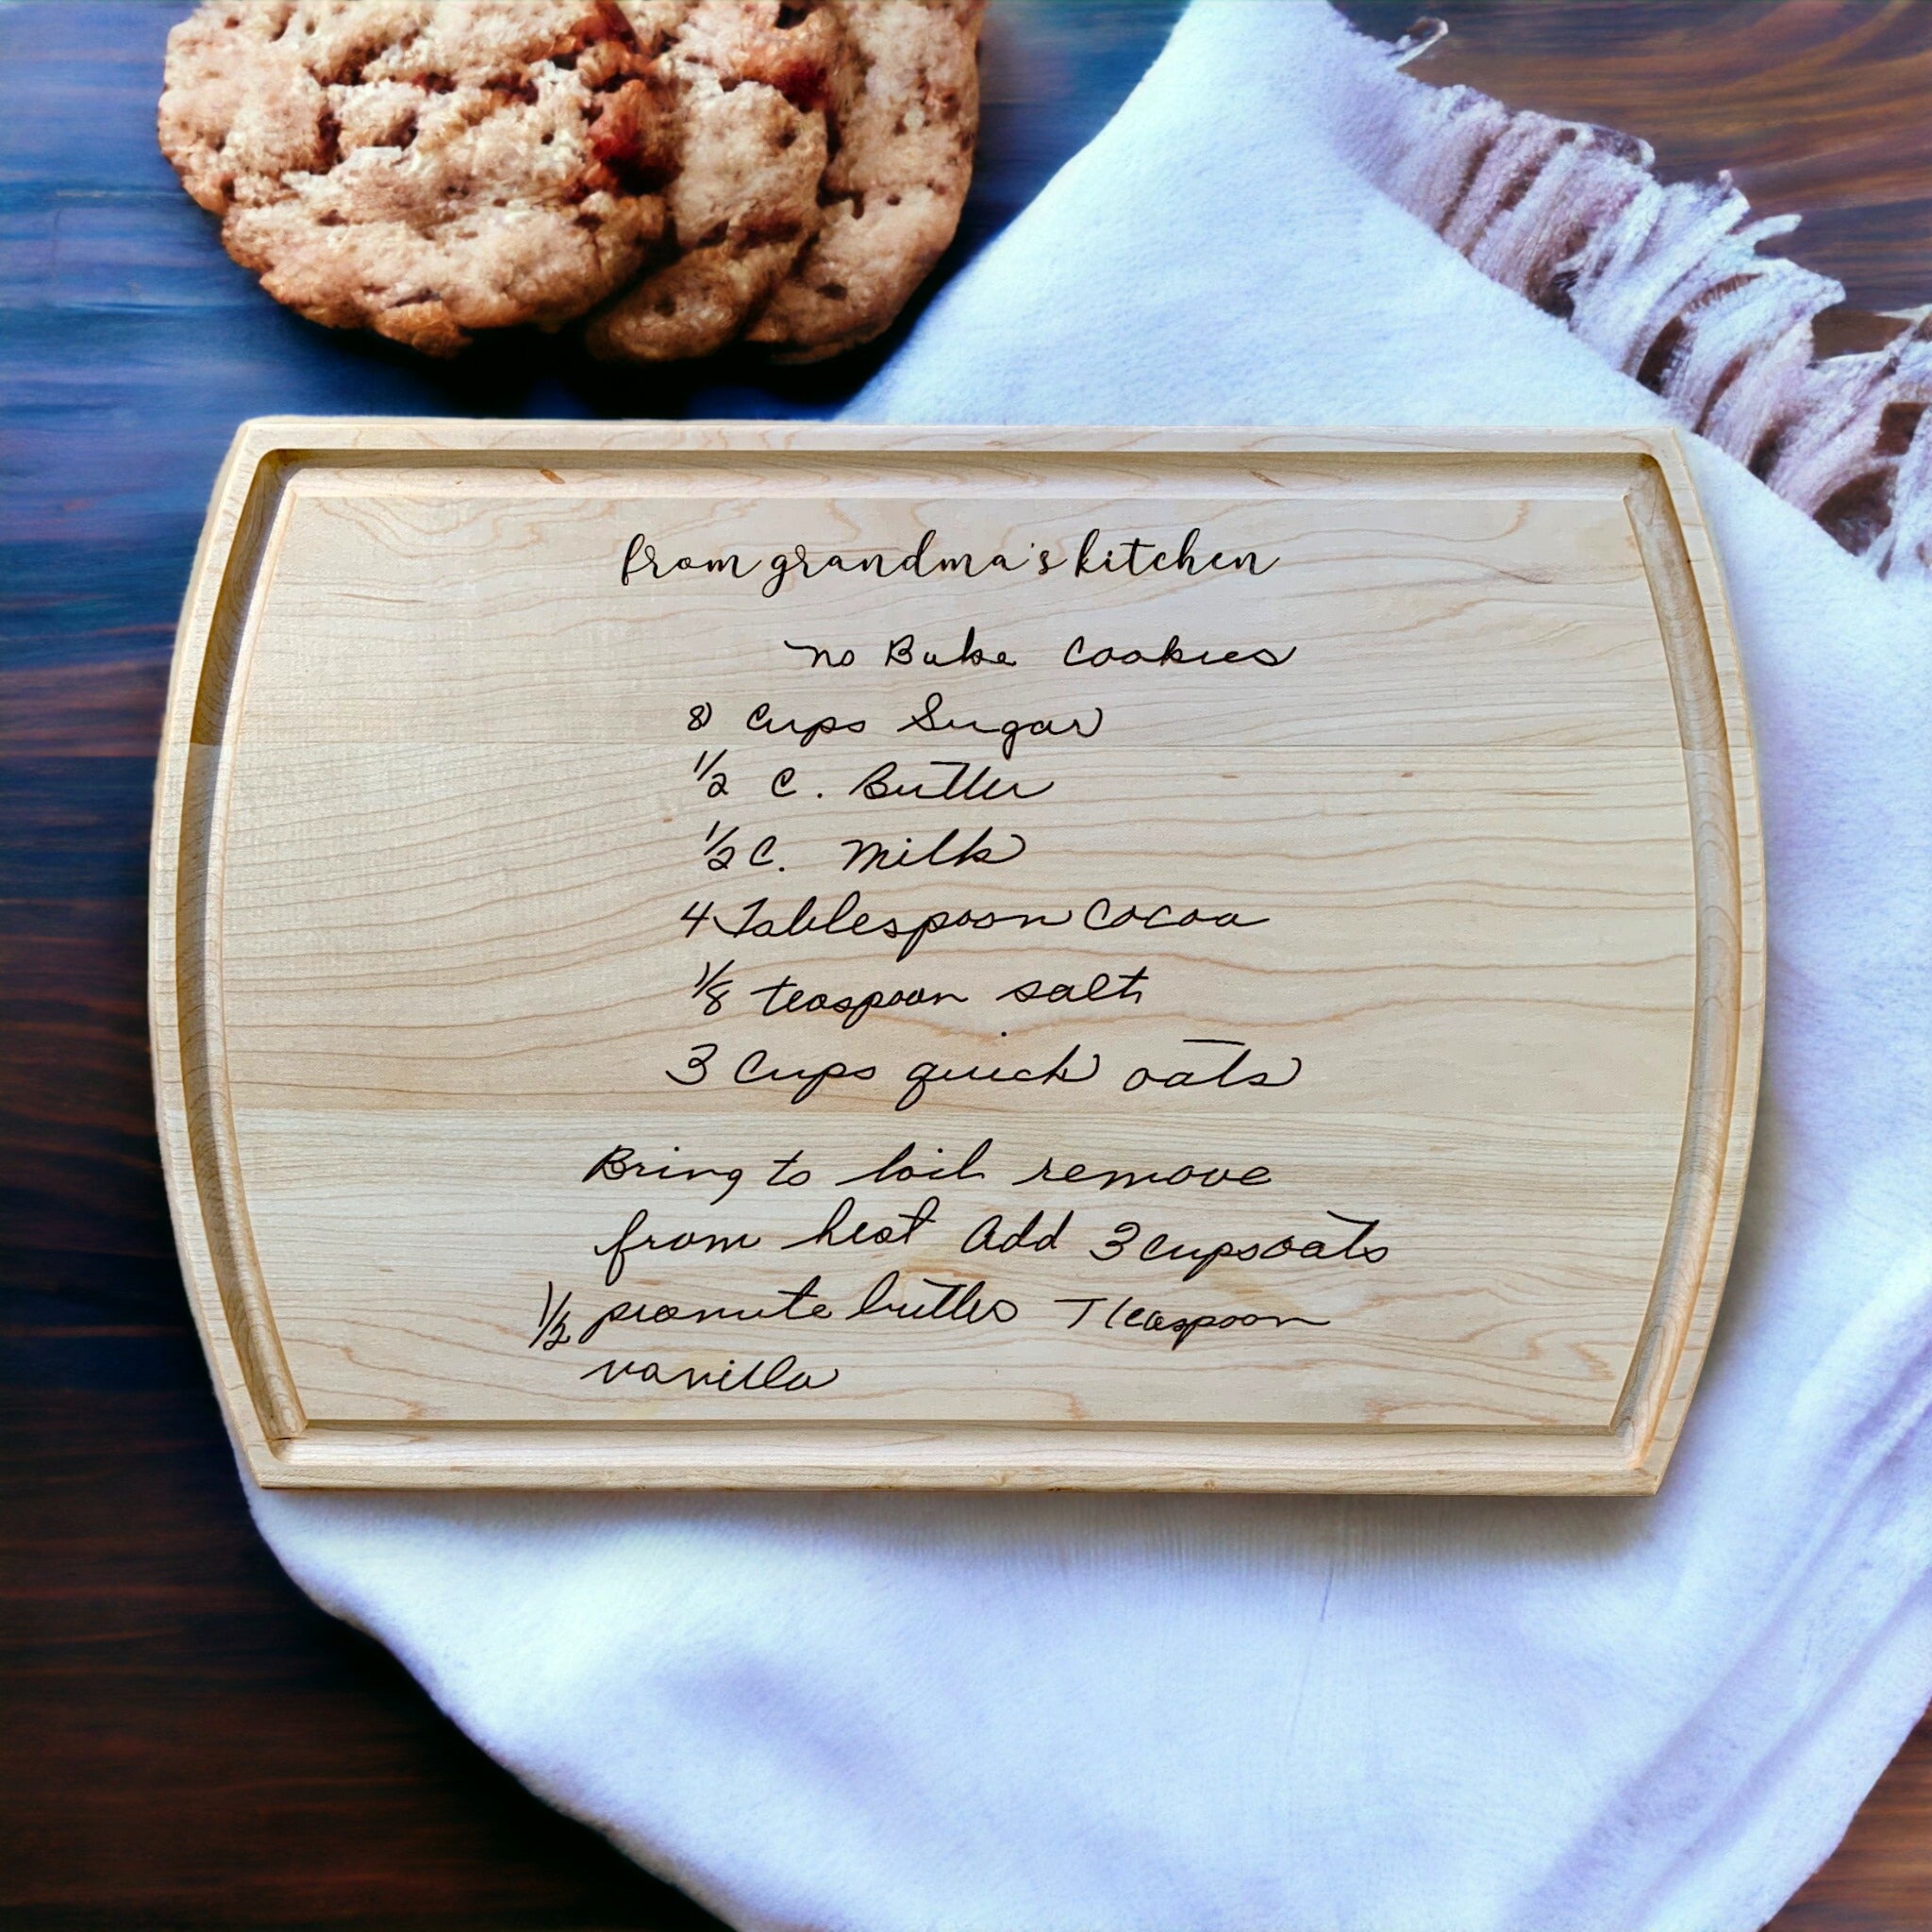 from grandma's kitchen
no Bake Cookies
8 Cups Sugar
1/2 C. Butter
1/2 C. Milk
4 Tablespoon Cocoa
1/8 teaspoon salt
3 Cups quick oats
Bring to boil remove
from heat Add 3 cups oats
1/2 peanute butter T teaspoon
vanilla